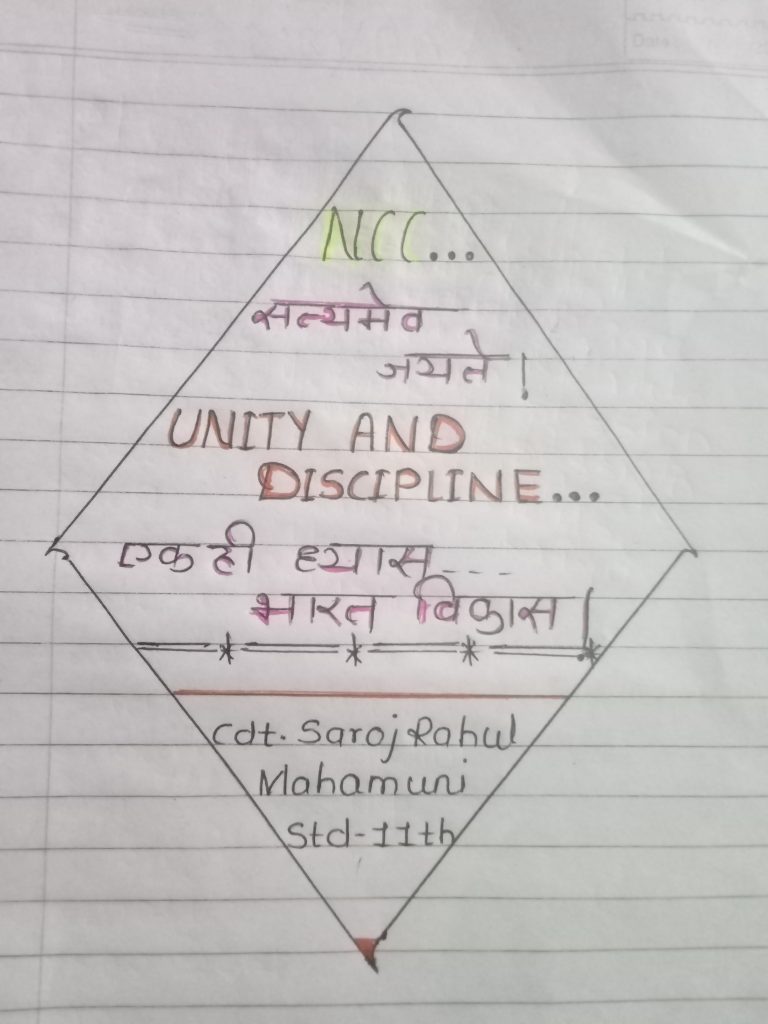 NCC...
सत्यमेव
जयते!
UNITY AND
DISCIPLINE...
एक ही ध्यास...
भारत विकास!
Cdt. Saroj Rahul
Mahamuni
Std-11th
Date